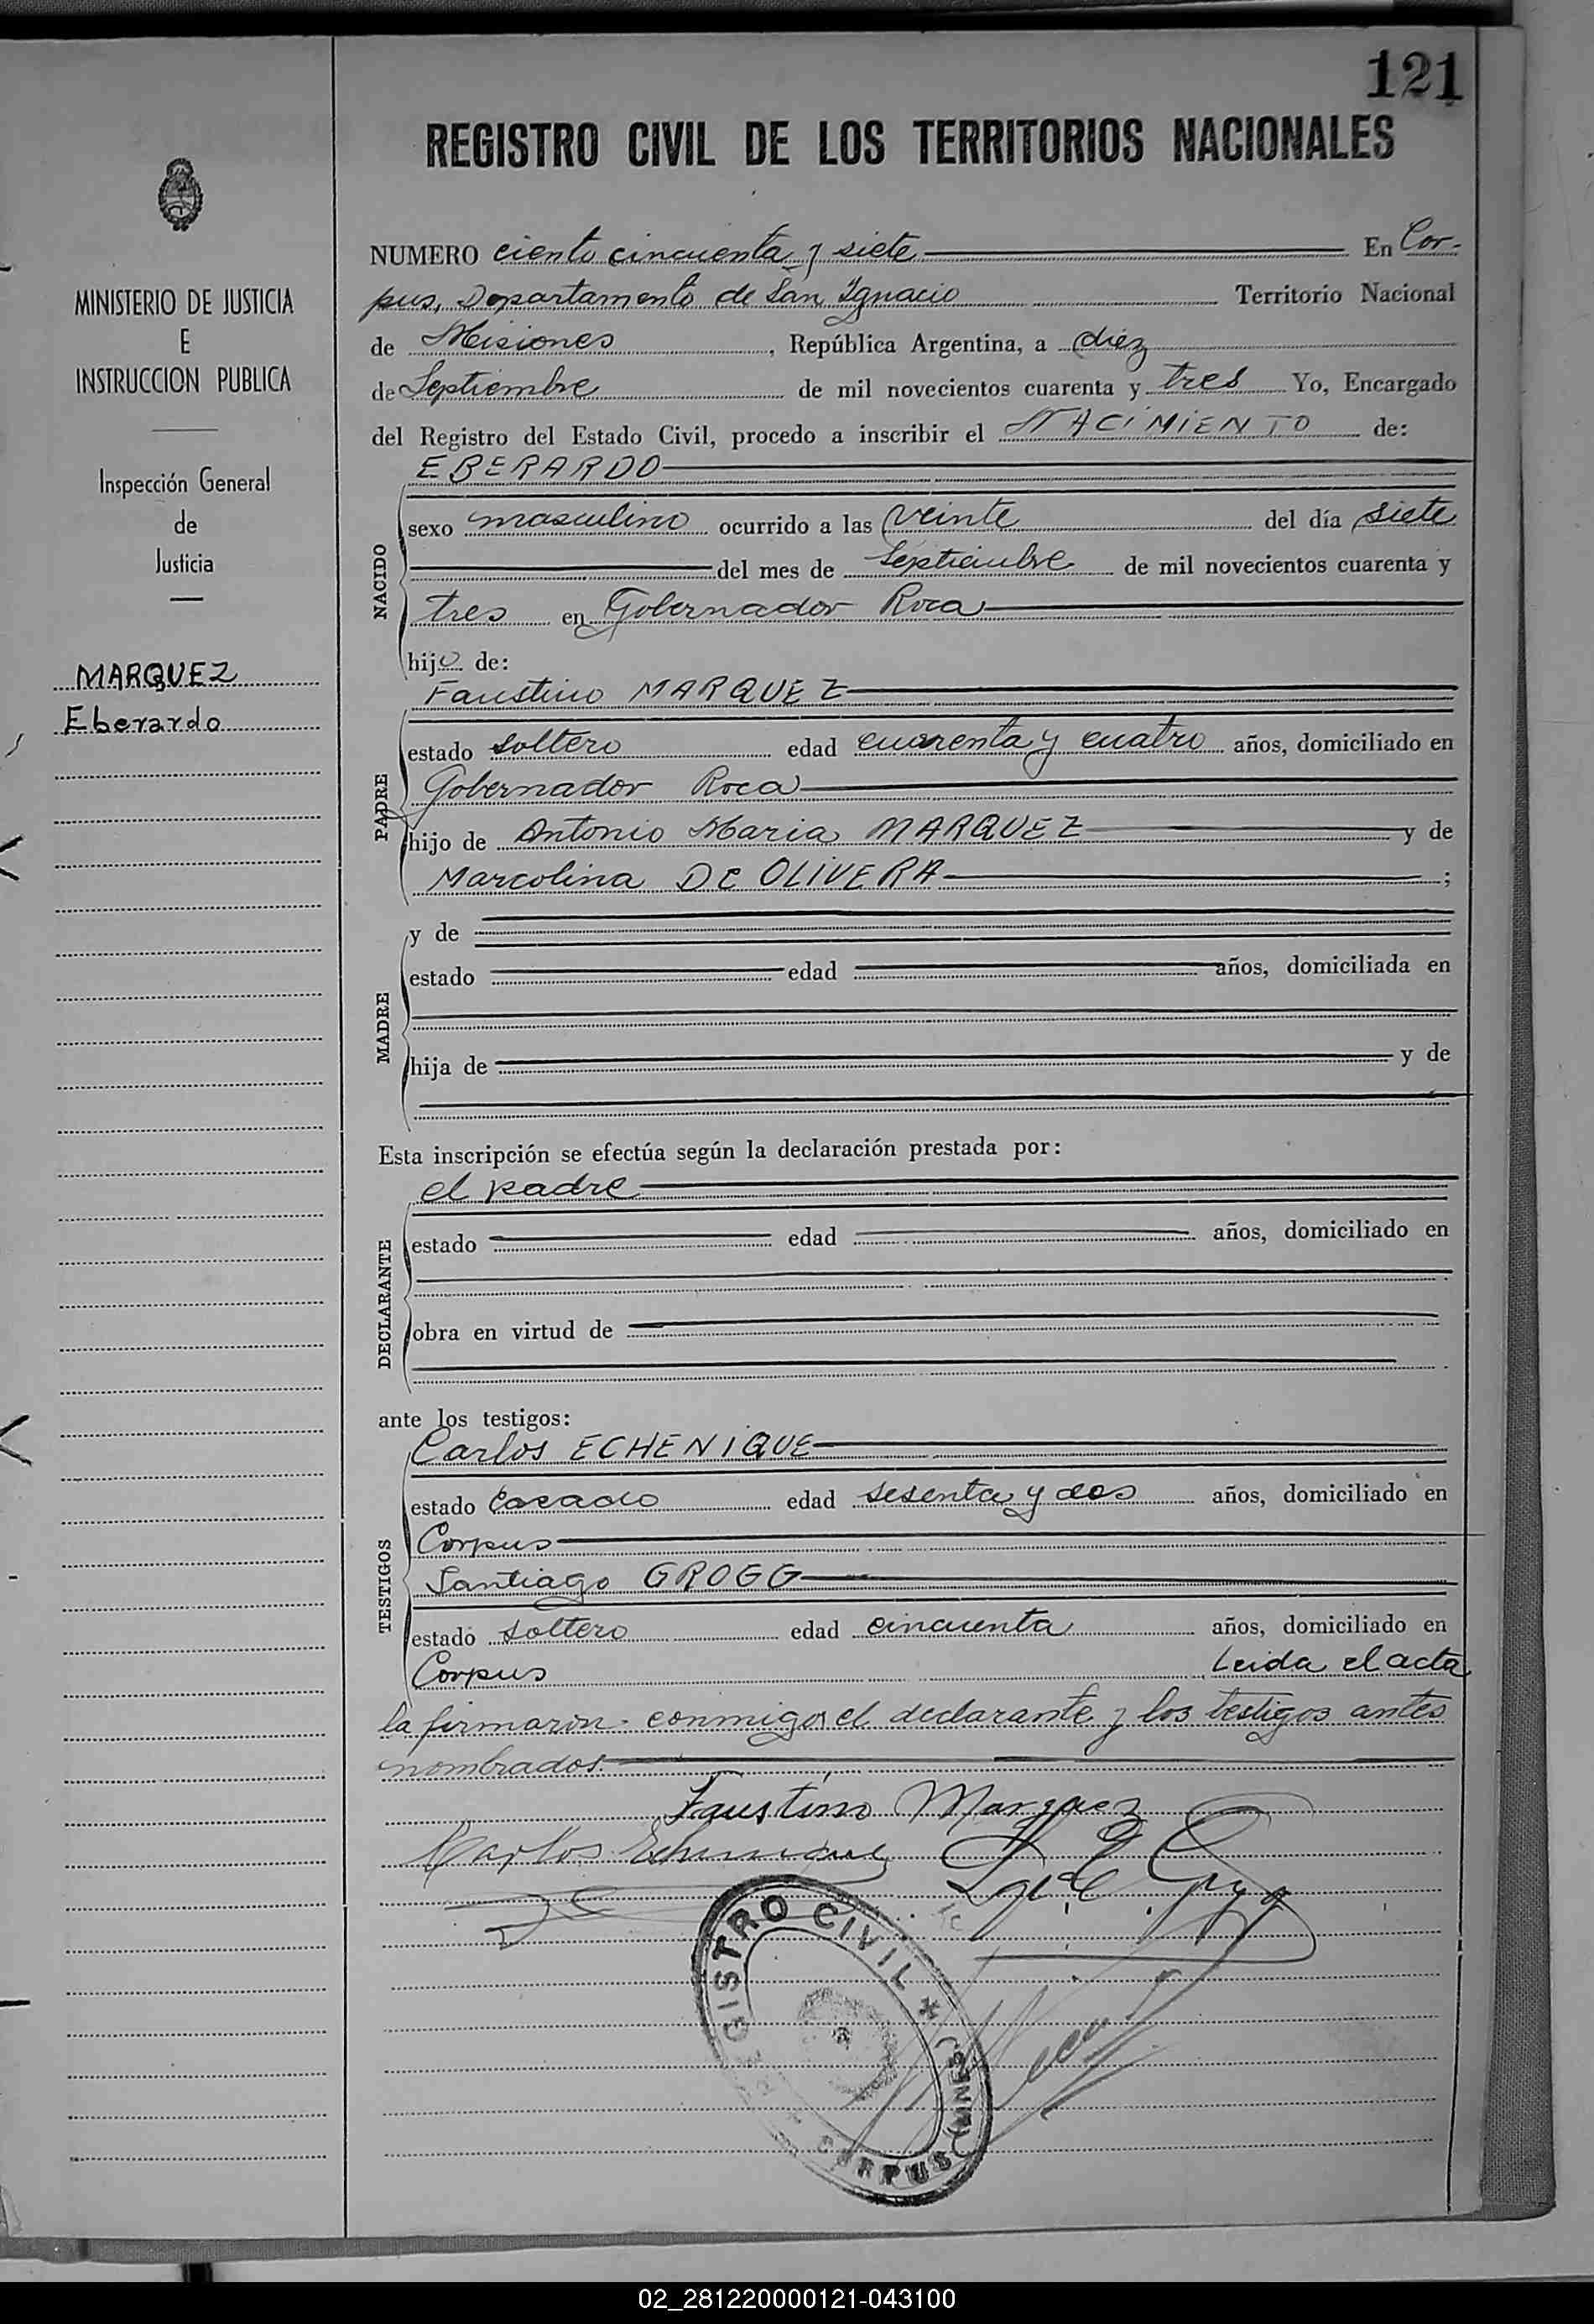 121
REGISTRO CIVIL DE LOS TERRITORIOS NACIONALES
MINISTERIO DE JUSTICIA
E
INSTRUCCION PUBLICA
Inspección General
de
Justicia
MARQUEZ
Eberardo
NUMERO ciento cincuenta y siete En Cor-
pus, Departamento de San Ignacio Territorio Nacional
de Misiones, República Argentina, a diez
de Septiembre de mil novecientos cuarenta y tres Yo, Encargado
del Registro del Estado Civil, procedo a inscribir el NACIMIENTO de:
EBERARDO
NACIDO
sexo masculino ocurrido a las veinte del día siete
del mes de Septiembre de mil novecientos cuarenta y
tres en Gobernador Roca
hijo de:
Faustino MARQUEZ
PADRE
estado soltero edad cuarenta y cuatro años, domiciliado en
Gobernador Roca
hijo de Antonio Maria MARQUEZ y de
Marcolina DE OLIVERA ;
MADRE
y de
estado edad años, domiciliada en
hija de y de
Esta inscripción se efectúa según la declaración prestada por:
el padre
DECLARANTE
estado edad años, domiciliado en
obra en virtud de
ante los testigos:
Carlos ECHENIQUE
TESTIGOS
estado casado edad sesenta y dos años, domiciliado en
Corpus
Santiago GROGG
estado soltero edad cincuenta años, domiciliado en
Corpus Leida el acta
la firmaron conmigo el declarante y los testigos antes
nombrados.
Faustino Marquez
Carlos Echenique
REGISTRO CIVIL * CORPUS (MNES)
02_281220000121-043100